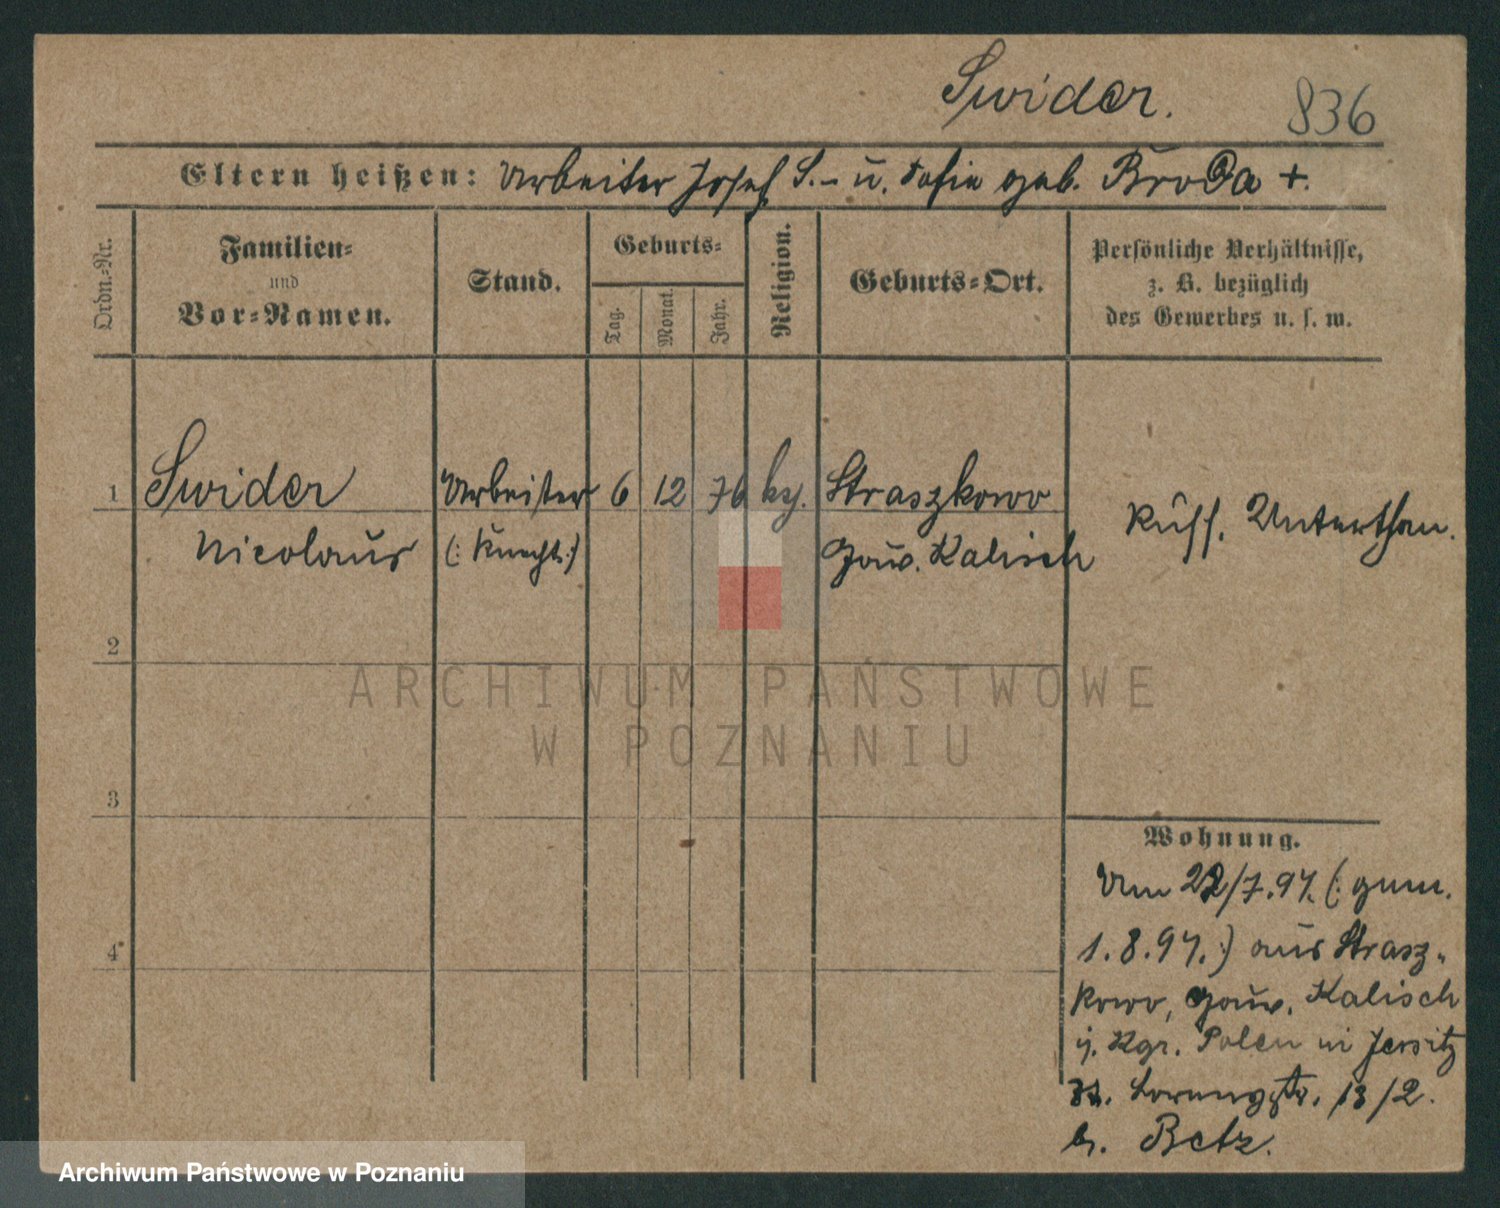 Swider.
836
Eltern heißen: Arbeiter Josef S. - u. Sofie geb. Broda +.
Ordn.-Nr.
Familien-
und
Vor-Namen.
Stand.
Geburts-
Tag.
Monat.
Jahr.
Religion.
Geburts-Ort.
Persönliche Verhältnisse,
z. B. bezüglich
des Gewerbes u. s. w.
1 Swider Arbeiter 6 12 76 kg. Straszkowo
Nicolaus (: Knecht :) Gouv. Kalisch
Russ. Unterthan.
2
3
4
ARCHIWUM PAŃSTWOWE
W POZNANIU
Wohnung.
Vm 22/7.97. (: gem.
1.8.97. :) aus Strasz-
kowo, Gouv. Kalisch
i. Kgr. Polen in Jersitz
13/2.
b. Betz.
Archiwum Państwowe w Poznaniu